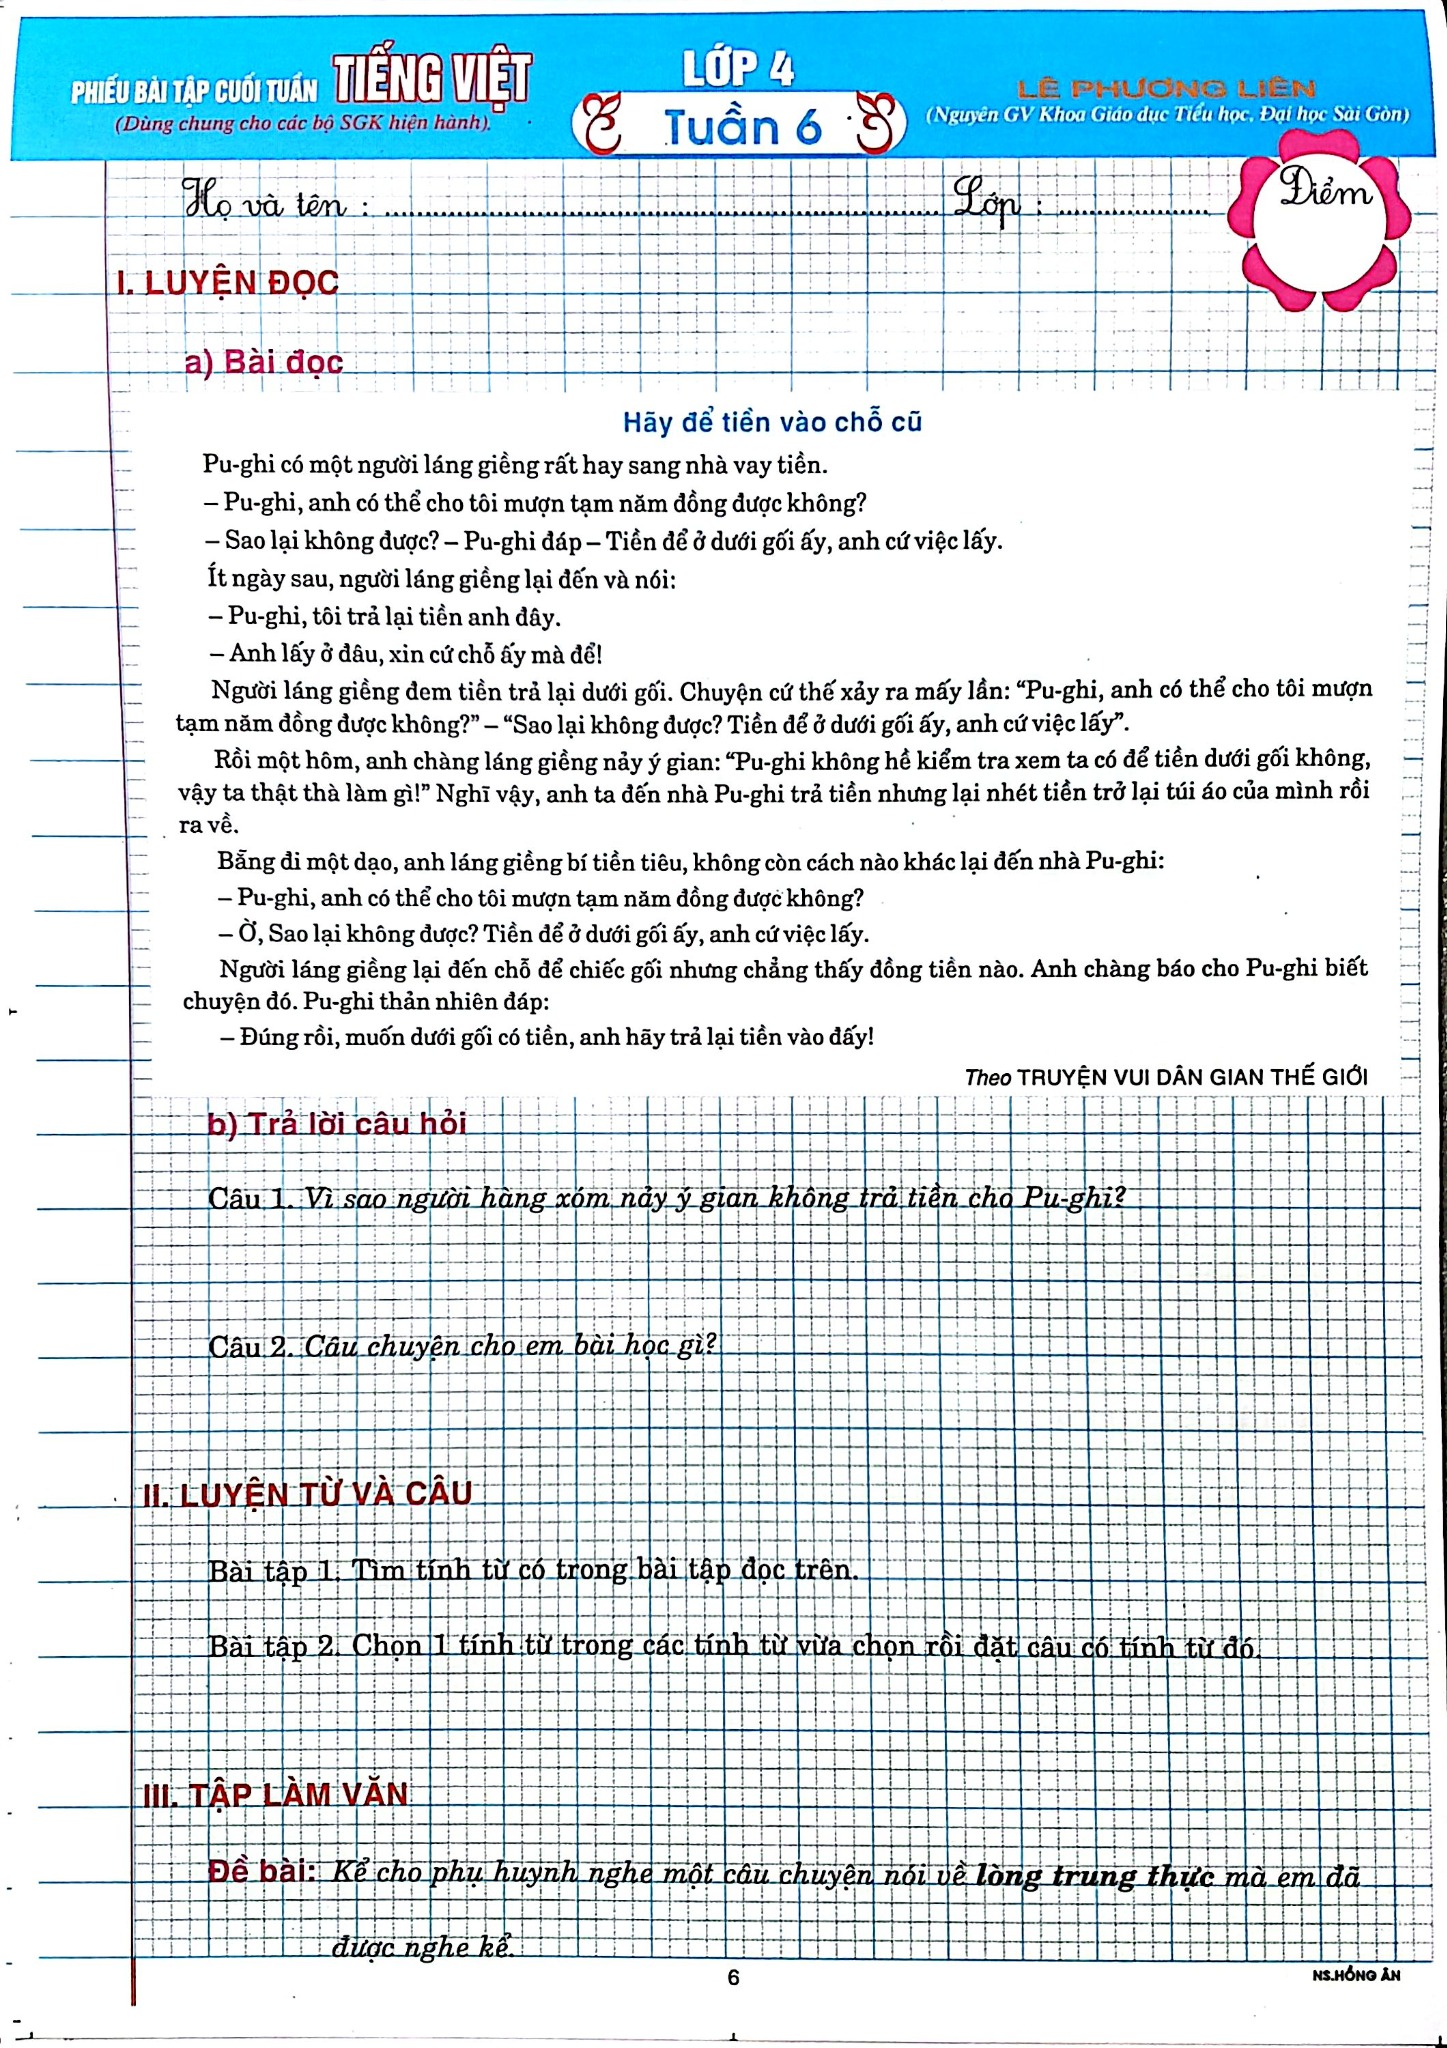 PHIẾU BÀI TẬP CUỐI TUẦN TIẾNG VIỆT
(Dùng chung cho các bộ SGK hiện hành).
LỚP 4
Tuần 6
LÊ PHƯƠNG LIÊN
(Nguyên GV Khoa Giáo dục Tiểu học, Đại học Sài Gòn)
Họ và tên : ........................................ Lớp : ................
Điểm
I. LUYỆN ĐỌC
a) Bài đọc
Hãy để tiền vào chỗ cũ
Pu-ghi có một người láng giềng rất hay sang nhà vay tiền.
– Pu-ghi, anh có thể cho tôi mượn tạm năm đồng được không?
– Sao lại không được? – Pu-ghi đáp – Tiền để ở dưới gối ấy, anh cứ việc lấy.
Ít ngày sau, người láng giềng lại đến và nói:
– Pu-ghi, tôi trả lại tiền anh đây.
– Anh lấy ở đâu, xin cứ chỗ ấy mà để!
Người láng giềng đem tiền trả lại dưới gối. Chuyện cứ thế xảy ra mấy lần: “Pu-ghi, anh có thể cho tôi mượn
tạm năm đồng được không?” – “Sao lại không được? Tiền để ở dưới gối ấy, anh cứ việc lấy”.
Rồi một hôm, anh chàng láng giềng nảy ý gian: “Pu-ghi không hề kiểm tra xem ta có để tiền dưới gối không,
vậy ta thật thà làm gì!” Nghĩ vậy, anh ta đến nhà Pu-ghi trả tiền nhưng lại nhét tiền trở lại túi áo của mình rồi
ra về.
Bẵng đi một dạo, anh láng giềng bí tiền tiêu, không còn cách nào khác lại đến nhà Pu-ghi:
– Pu-ghi, anh có thể cho tôi mượn tạm năm đồng được không?
– Ờ, Sao lại không được? Tiền để ở dưới gối ấy, anh cứ việc lấy.
Người láng giềng lại đến chỗ để chiếc gối nhưng chẳng thấy đồng tiền nào. Anh chàng báo cho Pu-ghi biết
chuyện đó. Pu-ghi thản nhiên đáp:
– Đúng rồi, muốn dưới gối có tiền, anh hãy trả lại tiền vào đấy!
Theo TRUYỆN VUI DÂN GIAN THẾ GIỚI
b) Trả lời câu hỏi
Câu 1. Vì sao người hàng xóm nảy ý gian không trả tiền cho Pu-ghi?
Câu 2. Câu chuyện cho em bài học gì?
II. LUYỆN TỪ VÀ CÂU
Bài tập 1. Tìm tính từ có trong bài tập đọc trên.
Bài tập 2. Chọn 1 tính từ trong các tính từ vừa chọn rồi đặt câu có tính từ đó.
III. TẬP LÀM VĂN
Đề bài: Kể cho phụ huynh nghe một câu chuyện nói về lòng trung thực mà em đã
được nghe kể.
6
NS.HỒNG ÂN